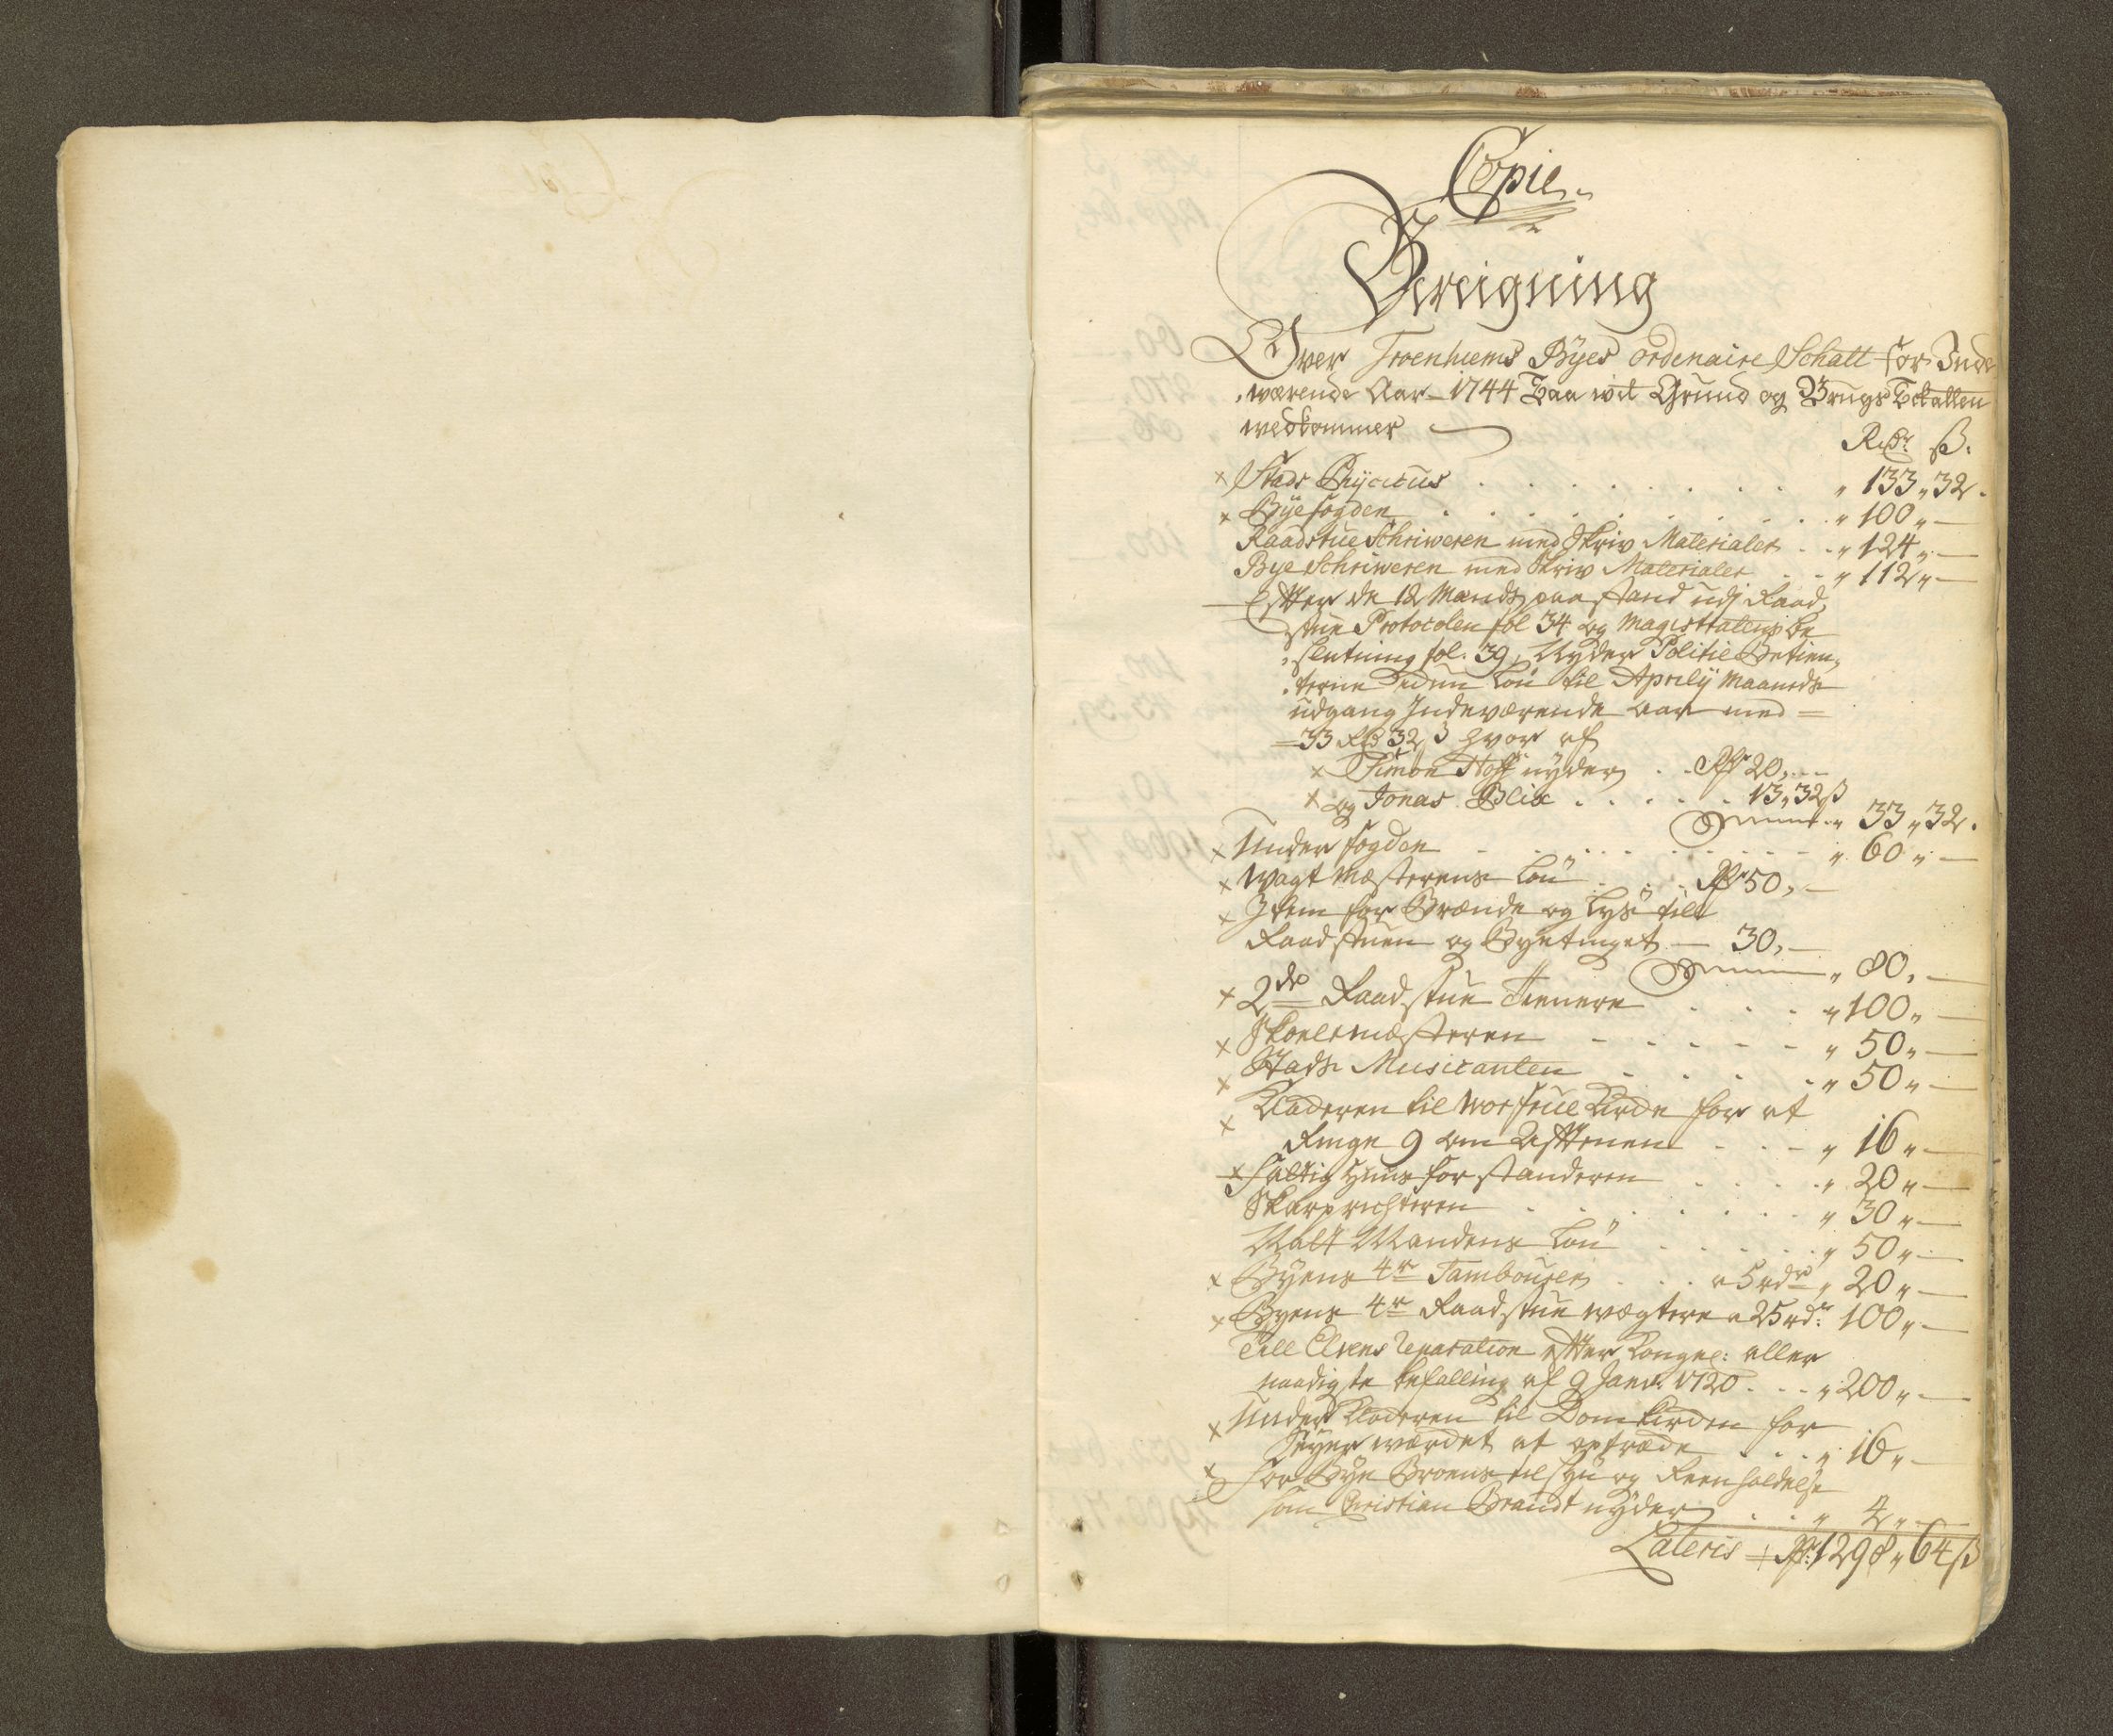 Copie
Bereigning
Over Tronhiems Byes ordenaire Schatt for Inde
værende Aar 1744 Saa wit Grund og Brugs Skatten
wedkommer
Rdr ß.
× Stads Phijcicus 133 " 32.
× Byefogden " 100 " —
Raadstue Schriweren med Skriv Materialer " 124 " —
Bye Schriweren med Skriv Materialer " 112 " —
Efter de 12 Mænds paastand udj Raad,
stue Protocolen fol 34 og Magistratens be
slutning fol. 39, Nyder Politie Betien,
terne deres Løn til Aprily Maaneds
udgang Indeværende aar med =
= 33 Rd 32 ß hvor af
× Simon Hoff nyder Rdr 20, —
× og Jonas Blix 13, 32 ß
Summa " 33 " 32.
× Under fogden " 60 " —
× Wagtmæsterens Løn Rdr 50, —
× Item for Brænde og Lys til
Raadstuen og Byetinget — 30, —
Summa " 80, —
× 2de Raadstue Tienere " 100 " —
× Skolemæsteren " 50 " —
× Stads Musicanten " 50 " —
× Klocheren til Vor frue Kirche for at
Ringe 9 om Afftenen " 16 " —
× Fattig Huus forstanderen " 20 " —
Skarprichteren " 30 " —
Natt Mandens Løn " 50 " —
× Byens 4re Tambourer a 5 rdr " 20 " —
× Byens 4re Raadstue wægtere a 25 rdr 100 " —
Till Elvens Reparation efter Kongel: aller
naadigste befalling af 9 Janr 1720 " 200 " —
× Under Klocheren til Domkirchen for
Seyerværchet at optræche " 16 " —
× For Bye Broens tilsyn og Reenholdelse
som Christian Brandt nyder " 4 " —
Lateris Rdr 1298 " 64 ß